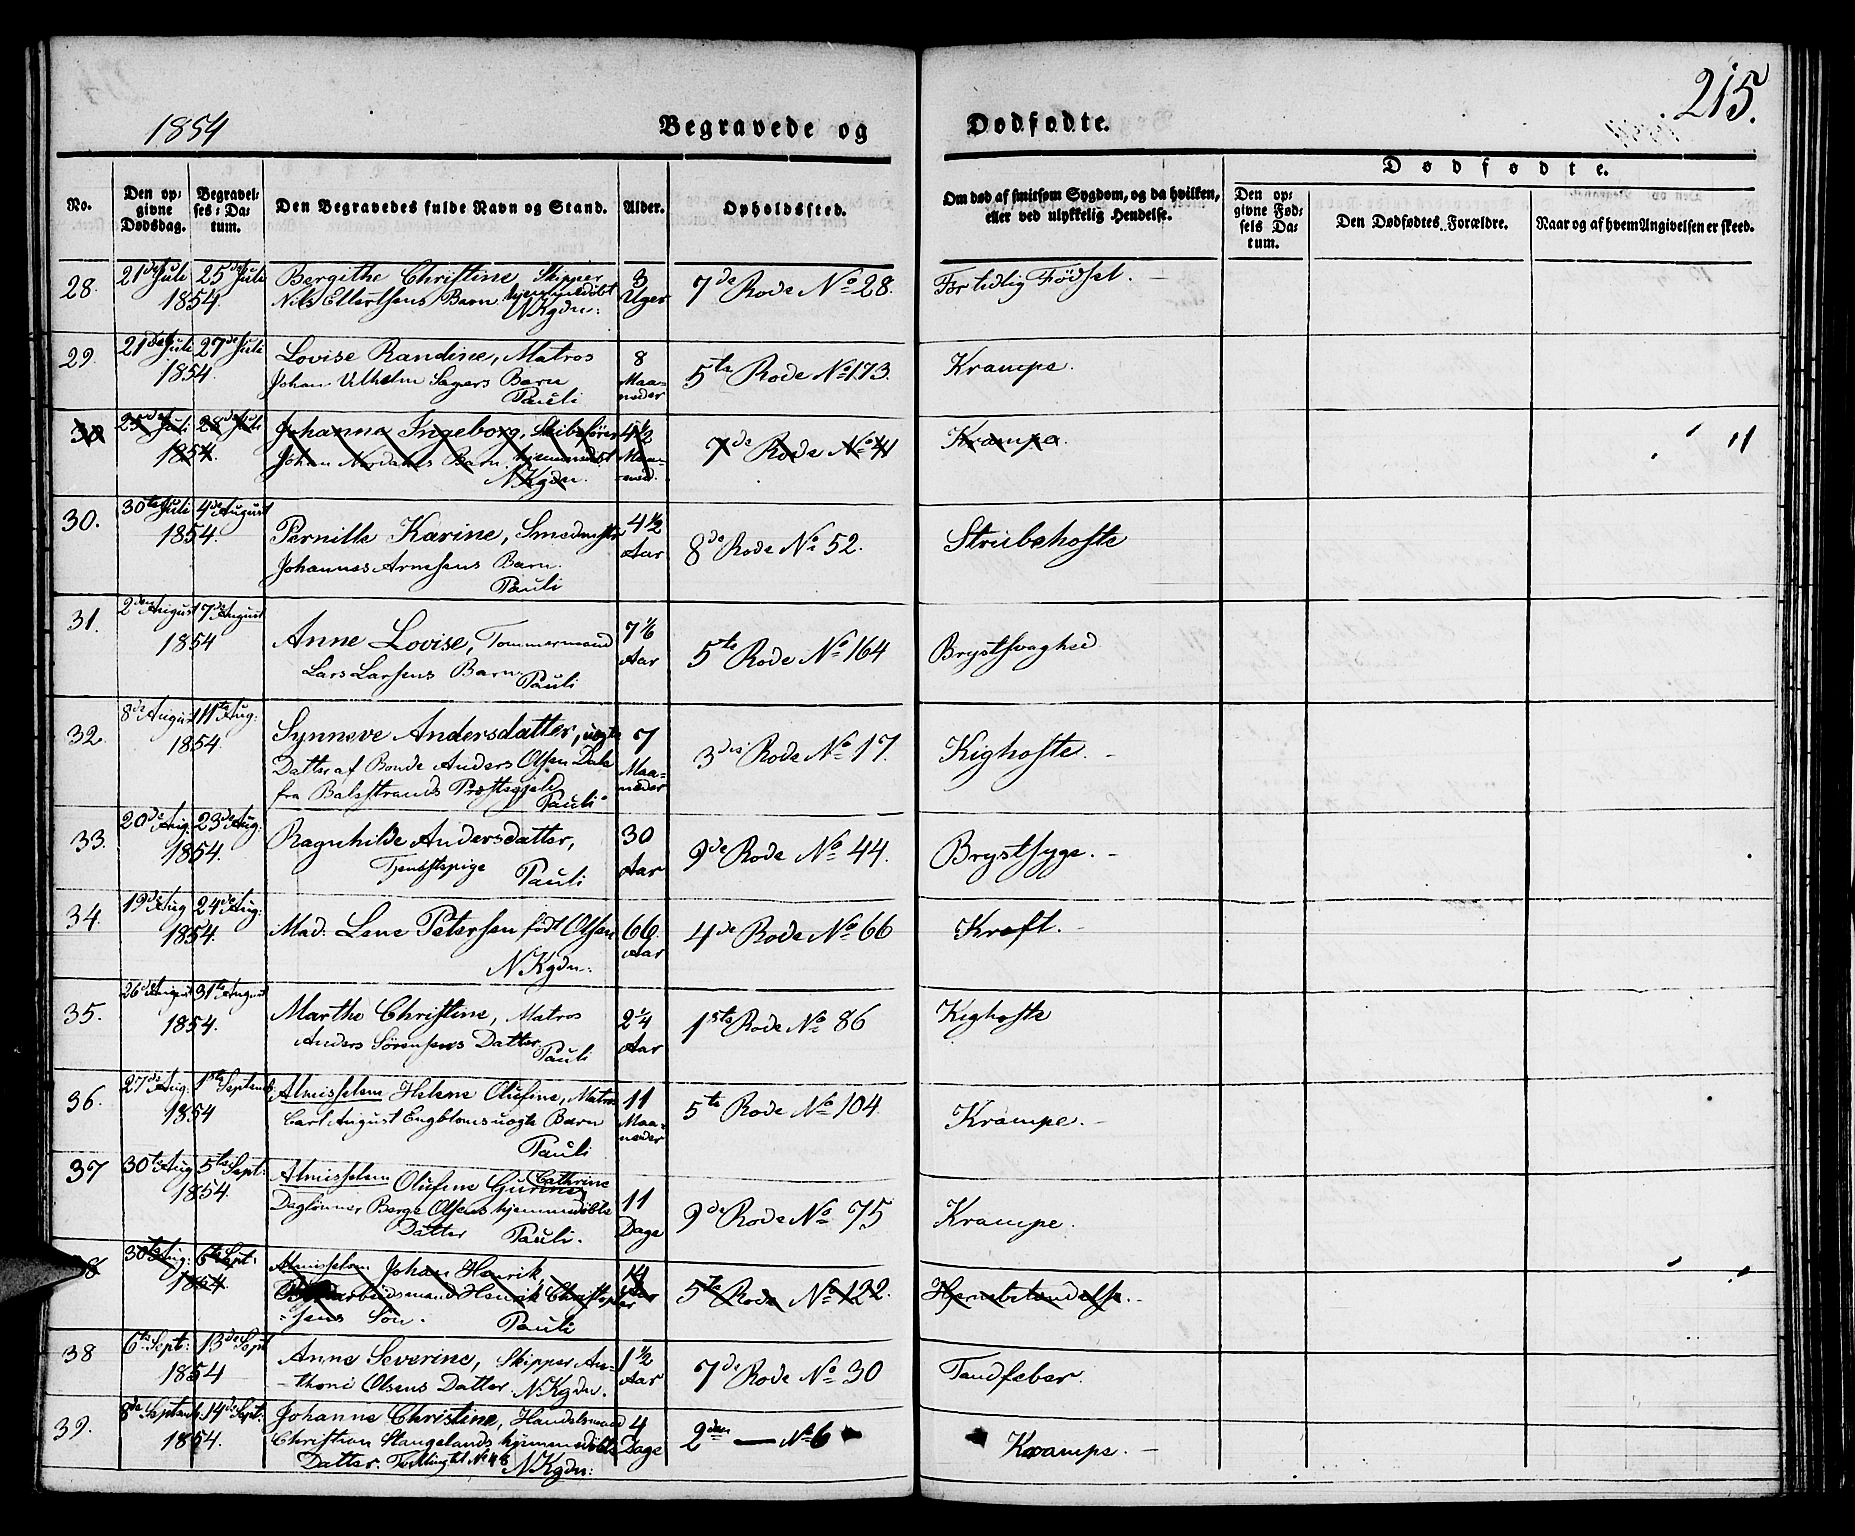 215.
1854
Begravede og Dødfødte.
Dødfødte.
No.
Den op-
givne
Dødsdag.
Begravel-
ses-Da-
tum.
Den Begravedes fulde Navn og Stand.
Alder.
Opholdssted.
Om død af smitsom Sygdom, og da hvilken,
eller ved ulykkelig Hendelse.
Den op-
givne Fød-
sels Da-
tum.
Den Dødfødtes Forældre.
Naar og af hvem Angivelsen er skeed.
28. 21de Juli 25de Juli Bergithe Christine Skipper 3 7de Rode No 28. For tidlig Fødsel.
1854. Nils Ellertsens Barn hjemmedøbt Uger
NKgdn:
29. 21de Juli 27de Juli Lovise Randine, Matros 8 5te Rode No 173. Krampe.
1854. Johan Vilhelm Sagers Barn Maa-
Pauli neder
30 25de Juli 28de Juli Johanne Ingeborg, Skibsfører 4 1/2 7de Rode No 41 Krampe.
1854. Johan Nordahls Barn hjemmedøbt Maa-
NKgdn. ned.
30. 30te Juli 4de August Pernille Karine, Smedmester 4 1/2 8de Rode No 52. Strubehoste
1854. Johannes Arnesens Barn. Aar
Pauli
31. 2den August 7de August Anne Lovise, Tømmermand 7 1/6 5te Rode No 164 Brystsvaghed
1854 Lars Larsens Barn Aar
Pauli
32. 8de August 11te Aug: Synneve Andersdatter, uægte 7 3die Rode No 17. Kighoste.
1854. Datter af Bonde Anders Olsen Dale Maa-
fra Balestrands Præstegjeld Pauli neder
33. 20de Aug. 23de Aug. Ragnhilde Andersdatter, 30 9de Rode No 44. Brystsyge.
1854. Tjenestepige Pauli Aar
34. 19de Aug 24de Aug: Mad. Lene Petersen født Olsen 66 4de Rode No 66 Kræft.
1854. NKgdn: Aar
35. 26de August 31te August Marthe Christine, Matros 2 1/4 1ste Rode No 86 Kighoste
1854. Anders Sørensens Datter Aar
Pauli
36. 27de Aug. 1ste Septemb: Almisselem Helene Olufine, Matros 11 5te Rode No 104. Krampe.
1854 Carl August Engbloms uægte Barn Maa-
Pauli neder
37 30te Aug 5te Sept: Almisselem Olufine Gurine Cathrine 11 9de Rode No 75 Krampe.
1854. Daglønner Berge Olsens hjemmedøbte Dage
Datter Pauli.
38 30te Aug: 6te Sept: Almisselem Johan Henrik, 14 5te Rode No 122. Hjernebetændelse.
1854. Arbeidsmand Henrik Christopher-
sens Søn. Pauli
38 6te Sept: 13de Sept Anne Severine, Skipper An- 1 1/2 7de Rode No 30 Tandfeber.
1854 thoni Olsens Datter. NKgdn. Aar
39. 8de Septemb. 14de Sept: Johanne Christine, Handelsmand 4 2den — No 6 Krampe.
1854. Christian Stangelands hjemmedøbte Dage
Datter. No 48 NKgdn: